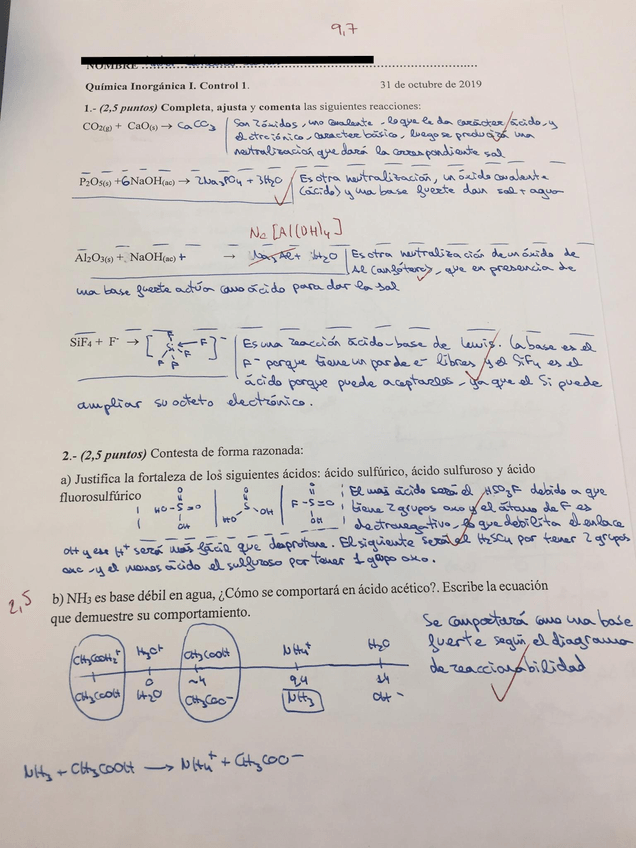 9,7
NOMBRE
Química Inorgánica I. Control 1. 31 de octubre de 2019
1.- (2,5 puntos) Completa, ajusta y comenta las siguientes reacciones:
CO2(g) + CaO(s) → CaCO3 Son 2 óxidos, uno covalente - lo que le da carácter ácido, y
el otro iónico, caracter básico, luego se producirá una
neutralización que dará la correspondiente sal
P2O5(s) + 6NaOH(ac) → 2Na3PO4 + 3H2O Es otra neutralización, un óxido covalente
(ácido) y una base fuerte dan sal + agua
Na[Al(OH)4]
Al2O3(s) + NaOH(ac) + → Na3Al + H2O Es otra neutralización de un óxido de
Al (anfótero), que en presencia de
una base fuerte actúa como ácido para dar la sal
SiF4 + F- → [Si F F F F F]- Es una reacción ácido-base de Lewis. La base es el
F- porque tiene un par de e- libres y el SiF4 es el
ácido porque puede aceptarlos - ya que el Si puede
ampliar su octeto electrónico.
2.- (2,5 puntos) Contesta de forma razonada:
a) Justifica la fortaleza de los siguientes ácidos: ácido sulfúrico, ácido sulfuroso y ácido
fluorosulfúrico
O HO-S=O OH O S HO OH O F-S=O OH El mas ácido será el HSO3F debido a que
tiene 2 grupos oxo y el átomo de F es
electronegativo - lo que debilita el enlace
OH y ese H+ será más fácil que desprotone. El siguiente será el H2SO4 por tener 2 grupos
oxo - y el menos ácido el sulfuroso por tener 1 grupo oxo.
2,5
b) NH3 es base débil en agua, ¿Cómo se comportará en ácido acético?. Escribe la ecuación
que demuestre su comportamiento.
Se comportará como una base
fuerte según el diagrama
de reaccionabilidad
CH3COOH2+ H3O+ CH3COOH NH4+ H2O
0 ~4 9,4 14
CH3COOH H2O CH3COO- NH3 OH-
NH3 + CH3COOH → NH4+ + CH3COO-